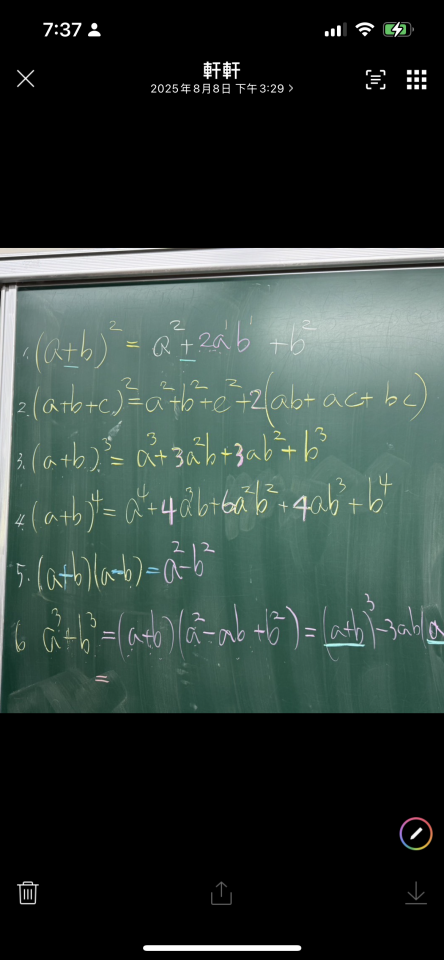 7:37
軒軒
2025年8月8日 下午3:29 >
1. (a+b)² = a²+2a¹b¹+b²
2. (a+b+c)²=a²+b²+c²+2(ab+ac+bc)
3. (a+b)³= a³+3a²b+3ab²+b³
4. (a+b)⁴= a⁴+4a³b+6a²b²+4ab³+b⁴
5. (a+b)(a-b)=a²-b²
6 a³+b³=(a+b)(a²-ab+b²)=(a+b)³-3ab(a
=